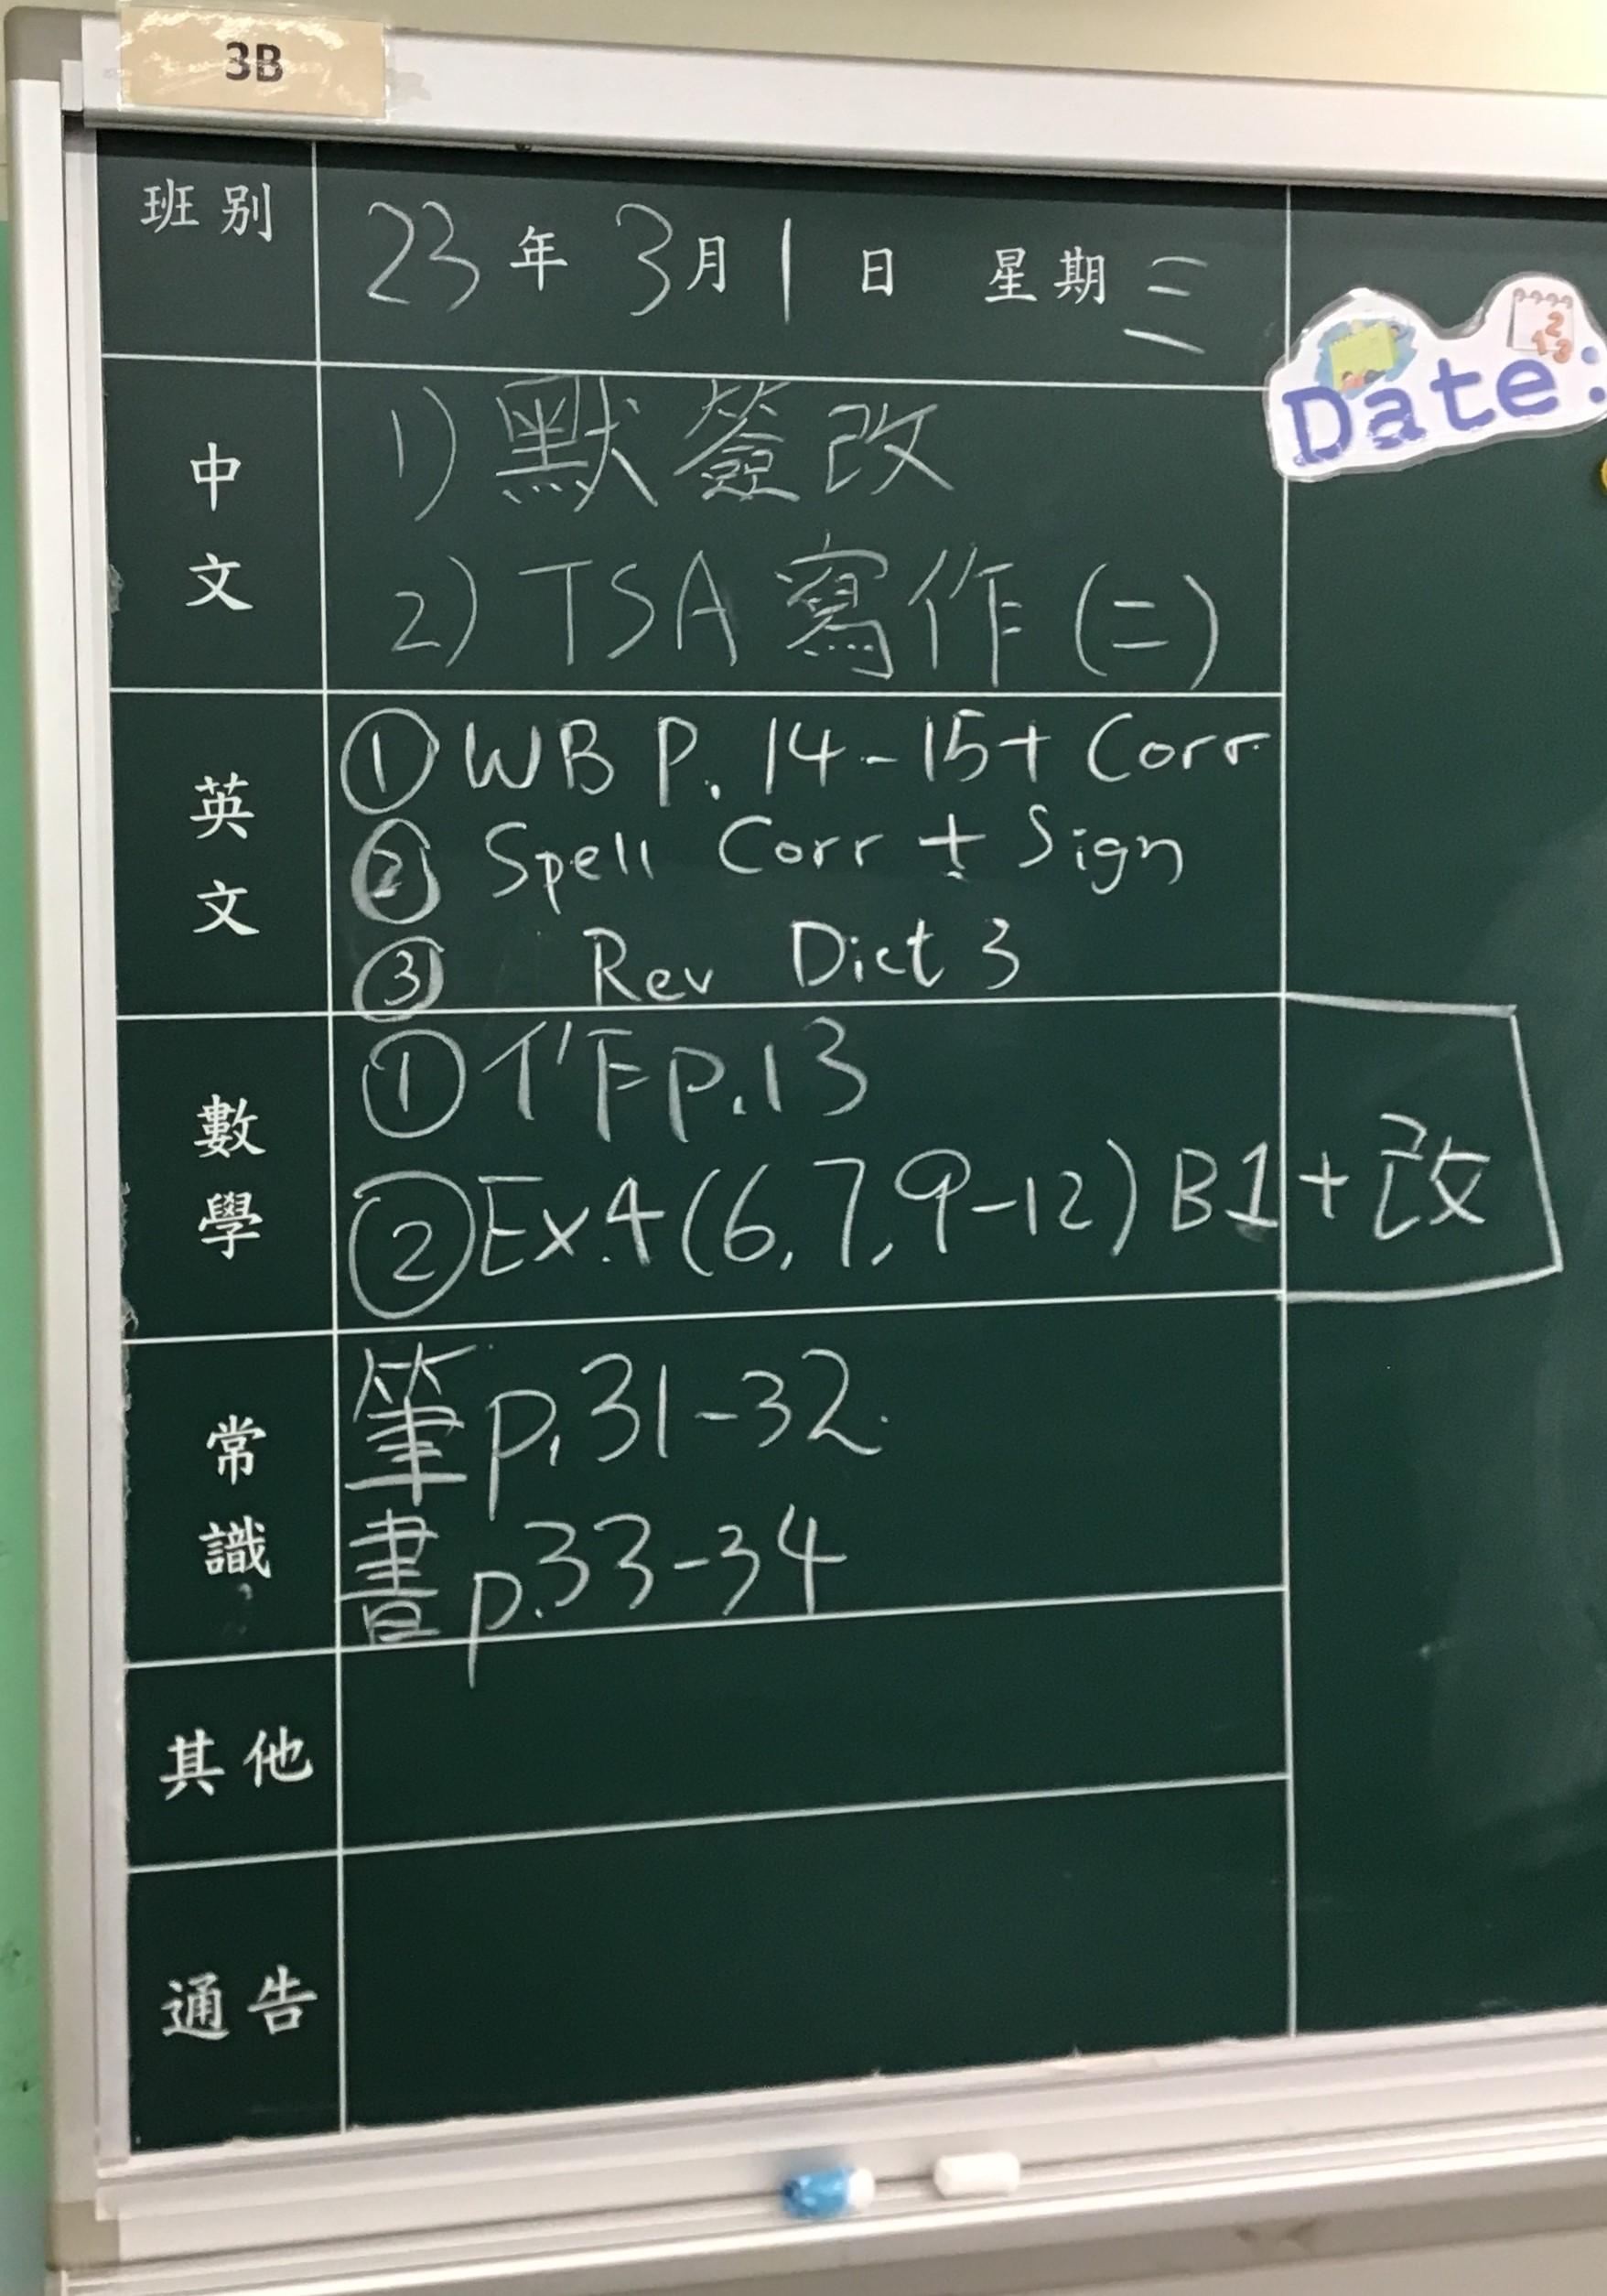 3B
班別
23年3月1日 星期三
Date:
中文
1) 默簽改
2) TSA 寫作(二)
英文
① WB P. 14-15+ Corr
② Spell Corr + Sign
③ Rev Dict 3
數學
① 作p.13
② Ex.4(6,7,9-12) B1+改
常識
筆p.31-32.
書p.33-34
其他
通告